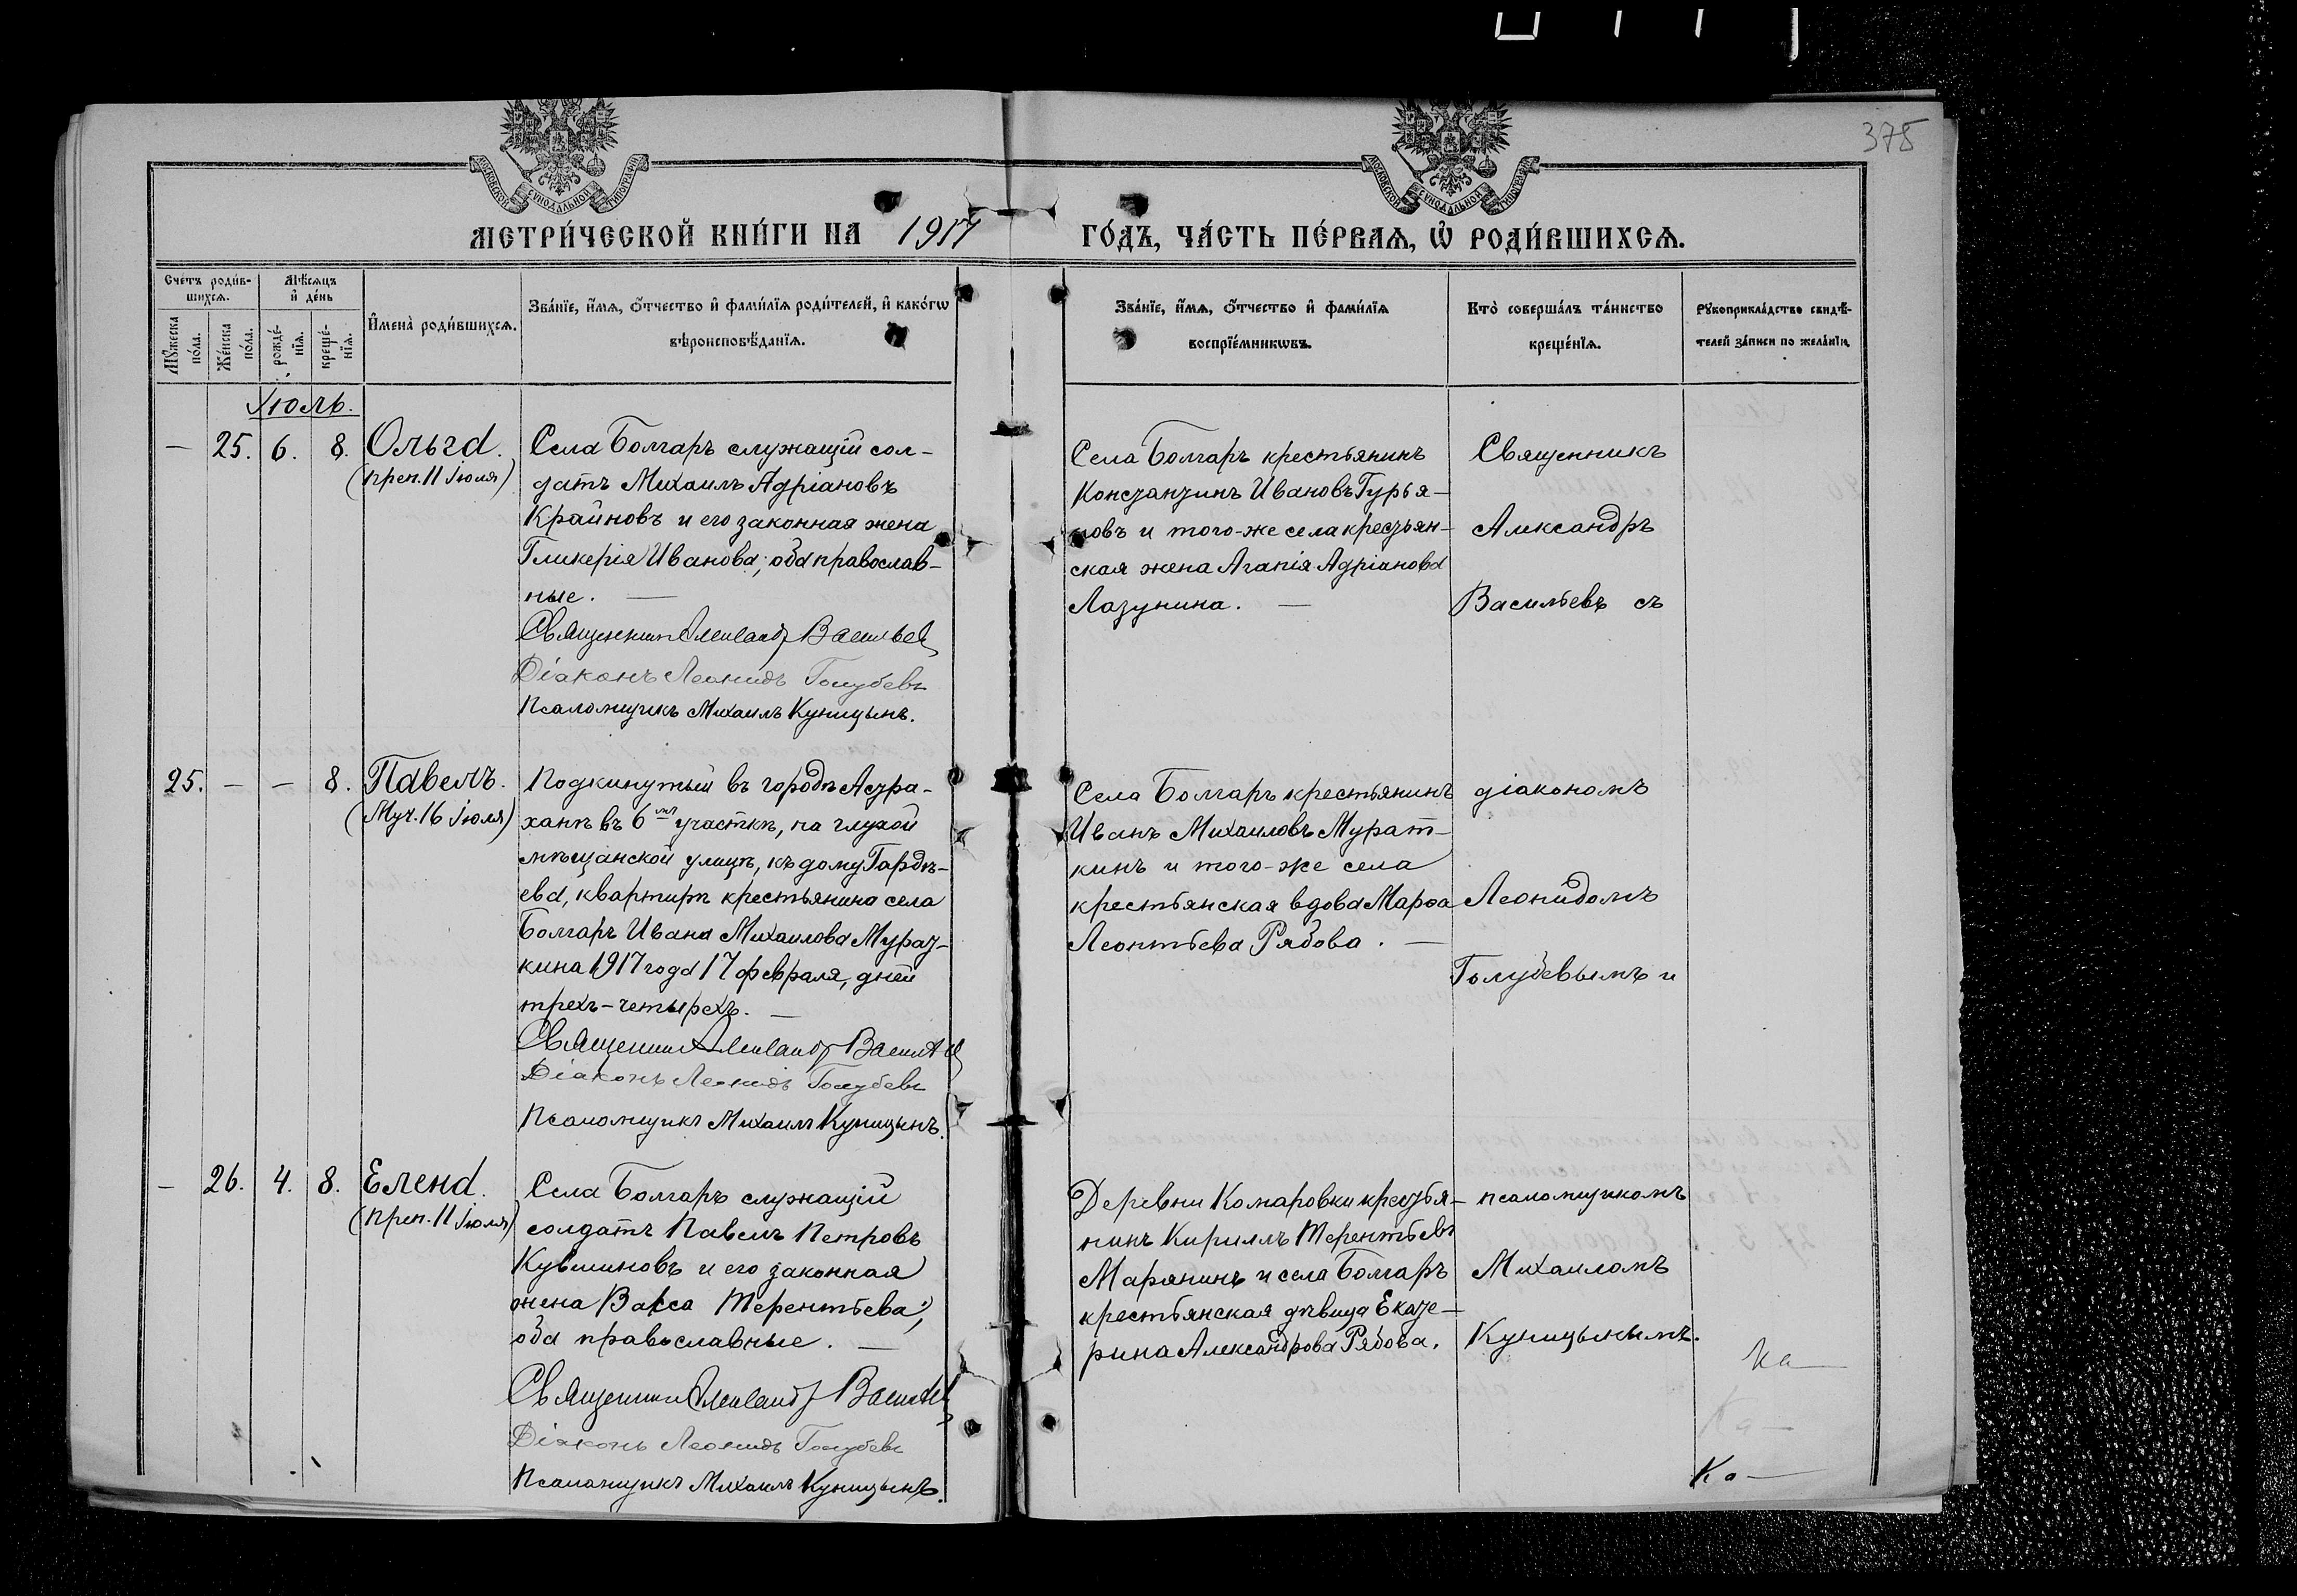 375
МОСКОВСКОЙ СѴНОДАЛЬНОЙ ТИПОГРАФІИ
МОСКОВСКОЙ СѴНОДАЛЬНОЙ ТИПОГРАФІИ
МЕТРИ́ЧЕСКОЙ КНИ́ГИ НА 1917 ГО́ДЪ, ЧА́СТЬ ПЕ́РВАѦ, Ѡ РОДИ́ВШИХСѦ.
Сче́тъ роди́в-
шихсѧ.
Мꙋ́жеска по́ла.
Же́нска по́ла.
Мѣ́сѧцъ и҆ де́нь
рожде́-
нїѧ.
креще́-
нїѧ.
И҆мена̀ роди́вшихсѧ.
Зва́нїе, и҆́мѧ, ѻ҆́тчество и҆ фами́лїѧ роди́телей, и҆ како́гѡ
вѣроисповѣ́данїѧ.
Зва́нїе, и҆́мѧ, ѻ҆́тчество и҆ фами́лїѧ
воспрїе́мникѡвъ.
Кто̀ соверша́лъ та́инство
креще́нїѧ.
Рꙋкоприкла́дство свидѣ́-
телей за́писи по жела́нїю.
Іюль.
— 25. 6. 8. Ольга.
(преп. 11 Іюля)
Села Болгаръ служащій сол-
датъ Михаилъ Адріановъ
Крайновъ и его законная жена
Гликерія Иванова; оба православ-
ные. —
Священникъ Александръ Васильевъ
Діаконъ Леонидъ Голубевъ
Псаломщикъ Михаилъ Куницынъ.
Села Болгаръ крестьянинъ
Константинъ Ивановъ Гурья-
новъ и того-же села крестьян-
ская жена Агапія Адріанова
Лазунина. —
Священникъ
Александръ
Васильевъ съ
25. — — 8. Павелъ.
(Муч. 16 Іюля)
Подкинутый въ городѣ Астра-
хани въ 6 участкѣ, на глухой
мѣщанской улицѣ, къ дому Гордѣ-
ева, квартирѣ крестьянина села
Болгаръ Ивана Михаилова Мурат-
кина 1917 года 17 февраля, дней
трехъ-четырехъ. —
Священникъ Александръ Васильевъ
Діаконъ Леонидъ Голубевъ
Псаломщикъ Михаилъ Куницынъ.
Села Болгаръ крестьянинъ
Иванъ Михаиловъ Мурат-
кинъ и того-же села
крестьянская вдова Марѳа
Леонтьева Рябова. —
діакономъ
Леонидомъ
Голубевымъ и
— 26. 4. 8. Елена.
(преп. 11 Іюля)
Села Болгаръ служащій
солдатъ Павелъ Петровъ
Кувшиновъ и его законная
жена Васса Терентьева;
оба православные. —
Священникъ Александръ Васильевъ
Діаконъ Леонидъ Голубевъ
Псаломщикъ Михаилъ Куницынъ.
Деревни Комаровки крестья-
нинъ Кириллъ Терентьевъ
Марянинъ и села Болгаръ
крестьянская дѣвица Екате-
рина Александрова Рябова.
псаломщикомъ
Михаиломъ
Куницынымъ.
На
Ка
Ка